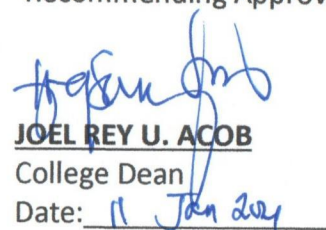 Recommending Approv
JOEL REY U. ACOB
College Dean
Date: 11 Jan 2021